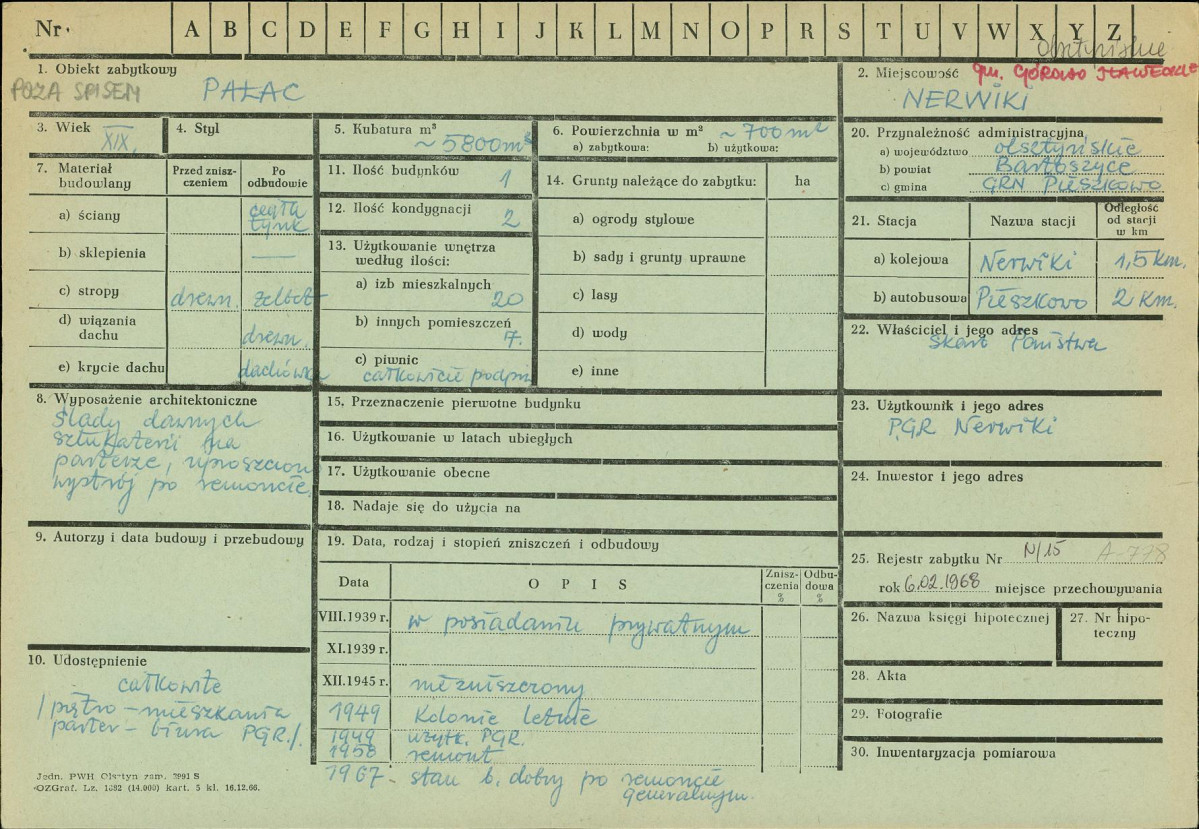 Nr. A B C D E F G H I J K L M N O P R S T U V W X Y Z
olsztyńskie
1. Obiekt zabytkowy
POZA SPISEM PAŁAC
2. Miejscowość gm. GÓROWO IŁAWECKIE
NERWIKI
3. Wiek
XIX.
4. Styl
5. Kubatura m³
~ 5800 m³
6. Powierzchnia w m² ~ 700 m²
a) zabytkowa: b) użytkowa:
7. Materiał budowlany
Przed zniszczeniem
Po odbudowie
a) ściany cegła tynk
b) sklepienia —
c) stropy drewn. żelbet
d) wiązania dachu drewn.
e) krycie dachu dachówka
8. Wyposażenie architektoniczne
Ślady dawnych
sztukaterii na
parterze, uproszczon
wystrój po remoncie.
9. Autorzy i data budowy i przebudowy
10. Udostępnienie
całkowite
/piętro – mieszkania
parter – biura PGR/.
Jedn. PWH Olsztyn zam. 3991 S
OZGraf. Lz. 1382 (14.000) kart. 5 kl. 16.12.66.
11. Ilość budynków 1
12. Ilość kondygnacji 2
13. Użytkowanie wnętrza
według ilości:
a) izb mieszkalnych
20
b) innych pomieszczeń
7.
c) piwnic
całkowicie podpiw
14. Grunty należące do zabytku: ha
a) ogrody stylowe
b) sady i grunty uprawne
c) lasy
d) wody
e) inne
15. Przeznaczenie pierwotne budynku
16. Użytkowanie w latach ubiegłych
17. Użytkowanie obecne
18. Nadaje się do użycia na
19. Data, rodzaj i stopień zniszczeń i odbudowy
Data OPIS Zniszczenia % Odbudowa %
VIII.1939 r. w posiadaniu prywatnym
XI.1939 r.
XII.1945 r. niezniszczony
1949 Kolonie letnie
1949 użytk. PGR.
1958 remont
1967 – stan b. dobry po remoncie
generalnym.
20. Przynależność administracyjna
a) województwo olsztyńskie
b) powiat Bartoszyce
c) gmina GRN Pieszkowo
21. Stacja Nazwa stacji Odległość od stacji w km
a) kolejowa Nerwiki 1,5 km.
b) autobusowa Pieszkowo 2 km.
22. Właściciel i jego adres
Skarb Państwa
23. Użytkownik i jego adres
PGR Nerwiki
24. Inwestor i jego adres
25. Rejestr zabytku Nr N/15 A-778
rok 6.02.1968 miejsce przechowywania
26. Nazwa księgi hipotecznej
27. Nr hipoteczny
28. Akta
29. Fotografie
30. Inwentaryzacja pomiarowa